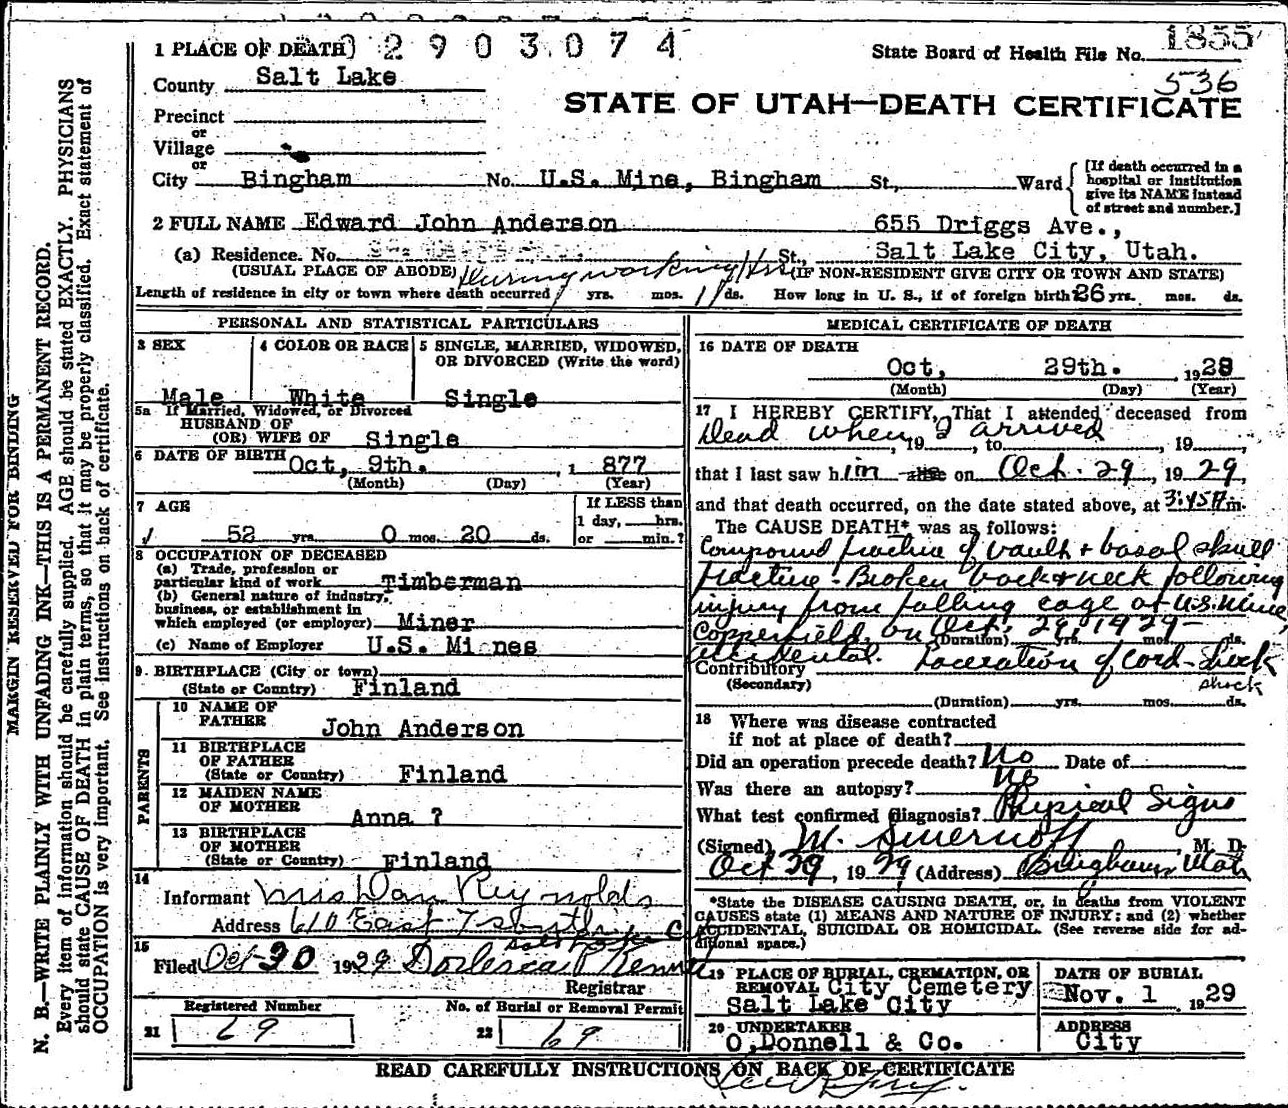 2903074
1 PLACE OF DEATH
State Board of Health File No. 1855
536
County Salt Lake
STATE OF UTAH—DEATH CERTIFICATE
Precinct
or
Village
or
City Bingham No. U.S. Mine, Bingham St., Ward
[If death occurred in a hospital or institution give its NAME instead of street and number.]
2 FULL NAME Edward John Anderson 655 Driggs Ave.,
(a) Residence. No. St., Salt Lake City, Utah.
(USUAL PLACE OF ABODE) During working Hrs (IF NON-RESIDENT GIVE CITY OR TOWN AND STATE)
Length of residence in city or town where death occurred yrs. mos. ds. How long in U. S., if of foreign birth 26 yrs. mos. ds.
PERSONAL AND STATISTICAL PARTICULARS
3 SEX 4 COLOR OR RACE 5 SINGLE, MARRIED, WIDOWED, OR DIVORCED (Write the word)
Male White Single
5a If Married, Widowed, or Divorced
HUSBAND OF
(OR) WIFE OF Single
6 DATE OF BIRTH Oct, 9th. , 1 877
(Month) (Day) (Year)
7 AGE If LESS than
1 day, hrs.
52 yrs. 0 mos. 20 ds. or min.?
8 OCCUPATION OF DECEASED
(a) Trade, profession or
particular kind of work Timberman
(b) General nature of industry,
business, or establishment in
which employed (or employer) Miner
(c) Name of Employer U.S. Mi nes
9. BIRTHPLACE (City or town)
(State or Country) Finland
PARENTS
10 NAME OF
FATHER John Anderson
11 BIRTHPLACE
OF FATHER
(State or Country) Finland
12 MAIDEN NAME
OF MOTHER Anna ?
13 BIRTHPLACE
OF MOTHER
(State or Country) Finland
14
Informant Mrs Dan Reynolds
Address 610 East 7 South
Salt Lake City
15
Filed Oct 30 1929
Registrar
Registered Number No. of Burial or Removal Permit
21 69 22 69
MEDICAL CERTIFICATE OF DEATH
16 DATE OF DEATH
Oct, 29th. , 1929
(Month) (Day) (Year)
17 I HEREBY CERTIFY, That I attended deceased from
Dead when I arrived , 19 , to , 19 ,
that I last saw h im alive on Oct. 29 , 19 29,
and that death occurred, on the date stated above, at 3:45 P.m.
The CAUSE DEATH* was as follows:
Compound fracture of vault + basal skull
fracture - Broken back + neck following
injury from falling cage at U.S. Mine
Copperfield, on Oct. 29, 1929-
(Duration) yrs. mos. ds.
Accidental. Laceration of cord - shock
Contributory
(Secondary) shock
(Duration) yrs. mos. ds.
18 Where was disease contracted
if not at place of death?
Did an operation precede death? No Date of
Was there an autopsy? No
What test confirmed diagnosis? Physical Signs
(Signed) M. Smernoff , M. D.
Oct 29, 1929 (Address) Bingham, Utah
*State the DISEASE CAUSING DEATH, or, in deaths from VIOLENT
CAUSES state (1) MEANS AND NATURE OF INJURY; and (2) whether
ACCIDENTAL, SUICIDAL OR HOMICIDAL. (See reverse side for ad-
ditional space.)
19 PLACE OF BURIAL, CREMATION, OR DATE OF BURIAL
REMOVAL City Cemetery
Salt Lake City Nov. 1 1929
20 UNDERTAKER ADDRESS
O,Donnell & Co. City
READ CAREFULLY INSTRUCTIONS ON BACK OF CERTIFICATE
MARGIN RESERVED FOR BINDING
N. B.—WRITE PLAINLY WITH UNFADING INK—THIS IS A PERMANENT RECORD.
Every item of information should be carefully supplied. AGE should be stated EXACTLY. PHYSICIANS
should state CAUSE OF DEATH in plain terms, so that it may be properly classified. Exact statement of
OCCUPATION is very important. See instructions on back of certificate.